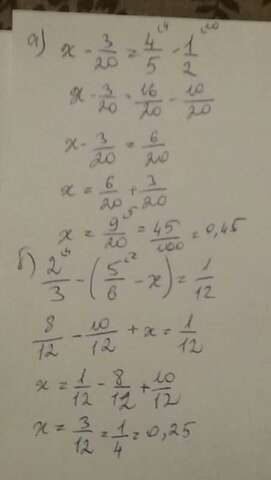 а) x - 3/20 = 4/5⁴ - 1/2¹⁰
x - 3/20 = 16/20 - 10/20
x - 3/20 = 6/20
x = 6/20 + 3/20
x = 9/20⁵ = 45/100 = 0,45
б) 2/3⁴ - (5/6² - x) = 1/12
8/12 - 10/12 + x = 1/12
x = 1/12 - 8/12 + 10/12
x = 3/12 = 1/4 = 0,25